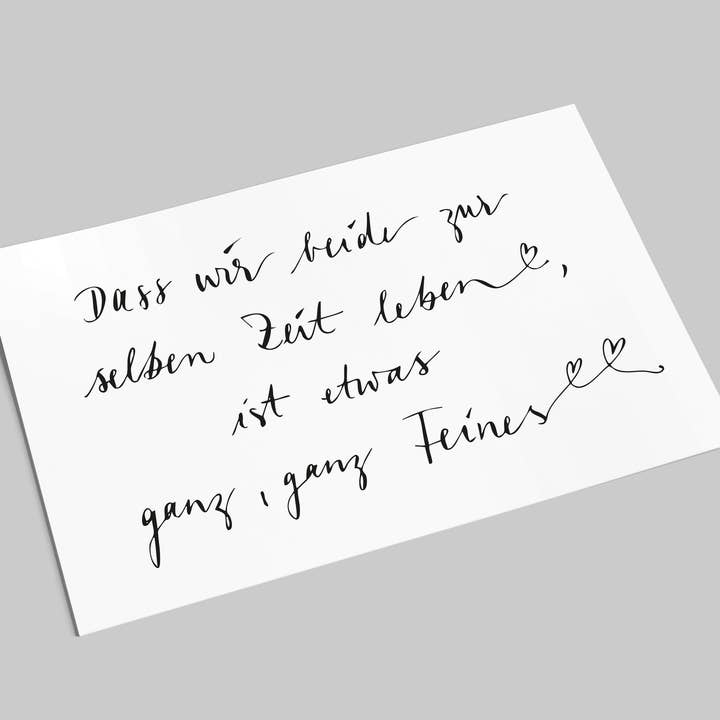 Dass wir beide zur
selben Zeit leben,
ist etwas
ganz, ganz Feines